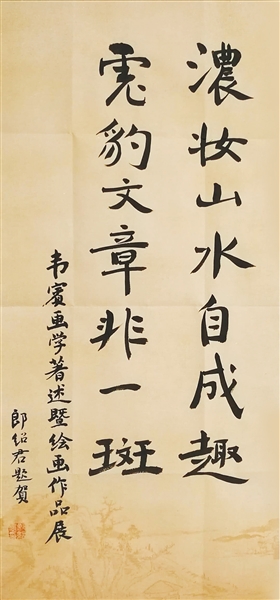 濃妆山水自成趣
虎豹文章非一斑
韦宾画学著述暨绘画作品展
郎绍君题贺